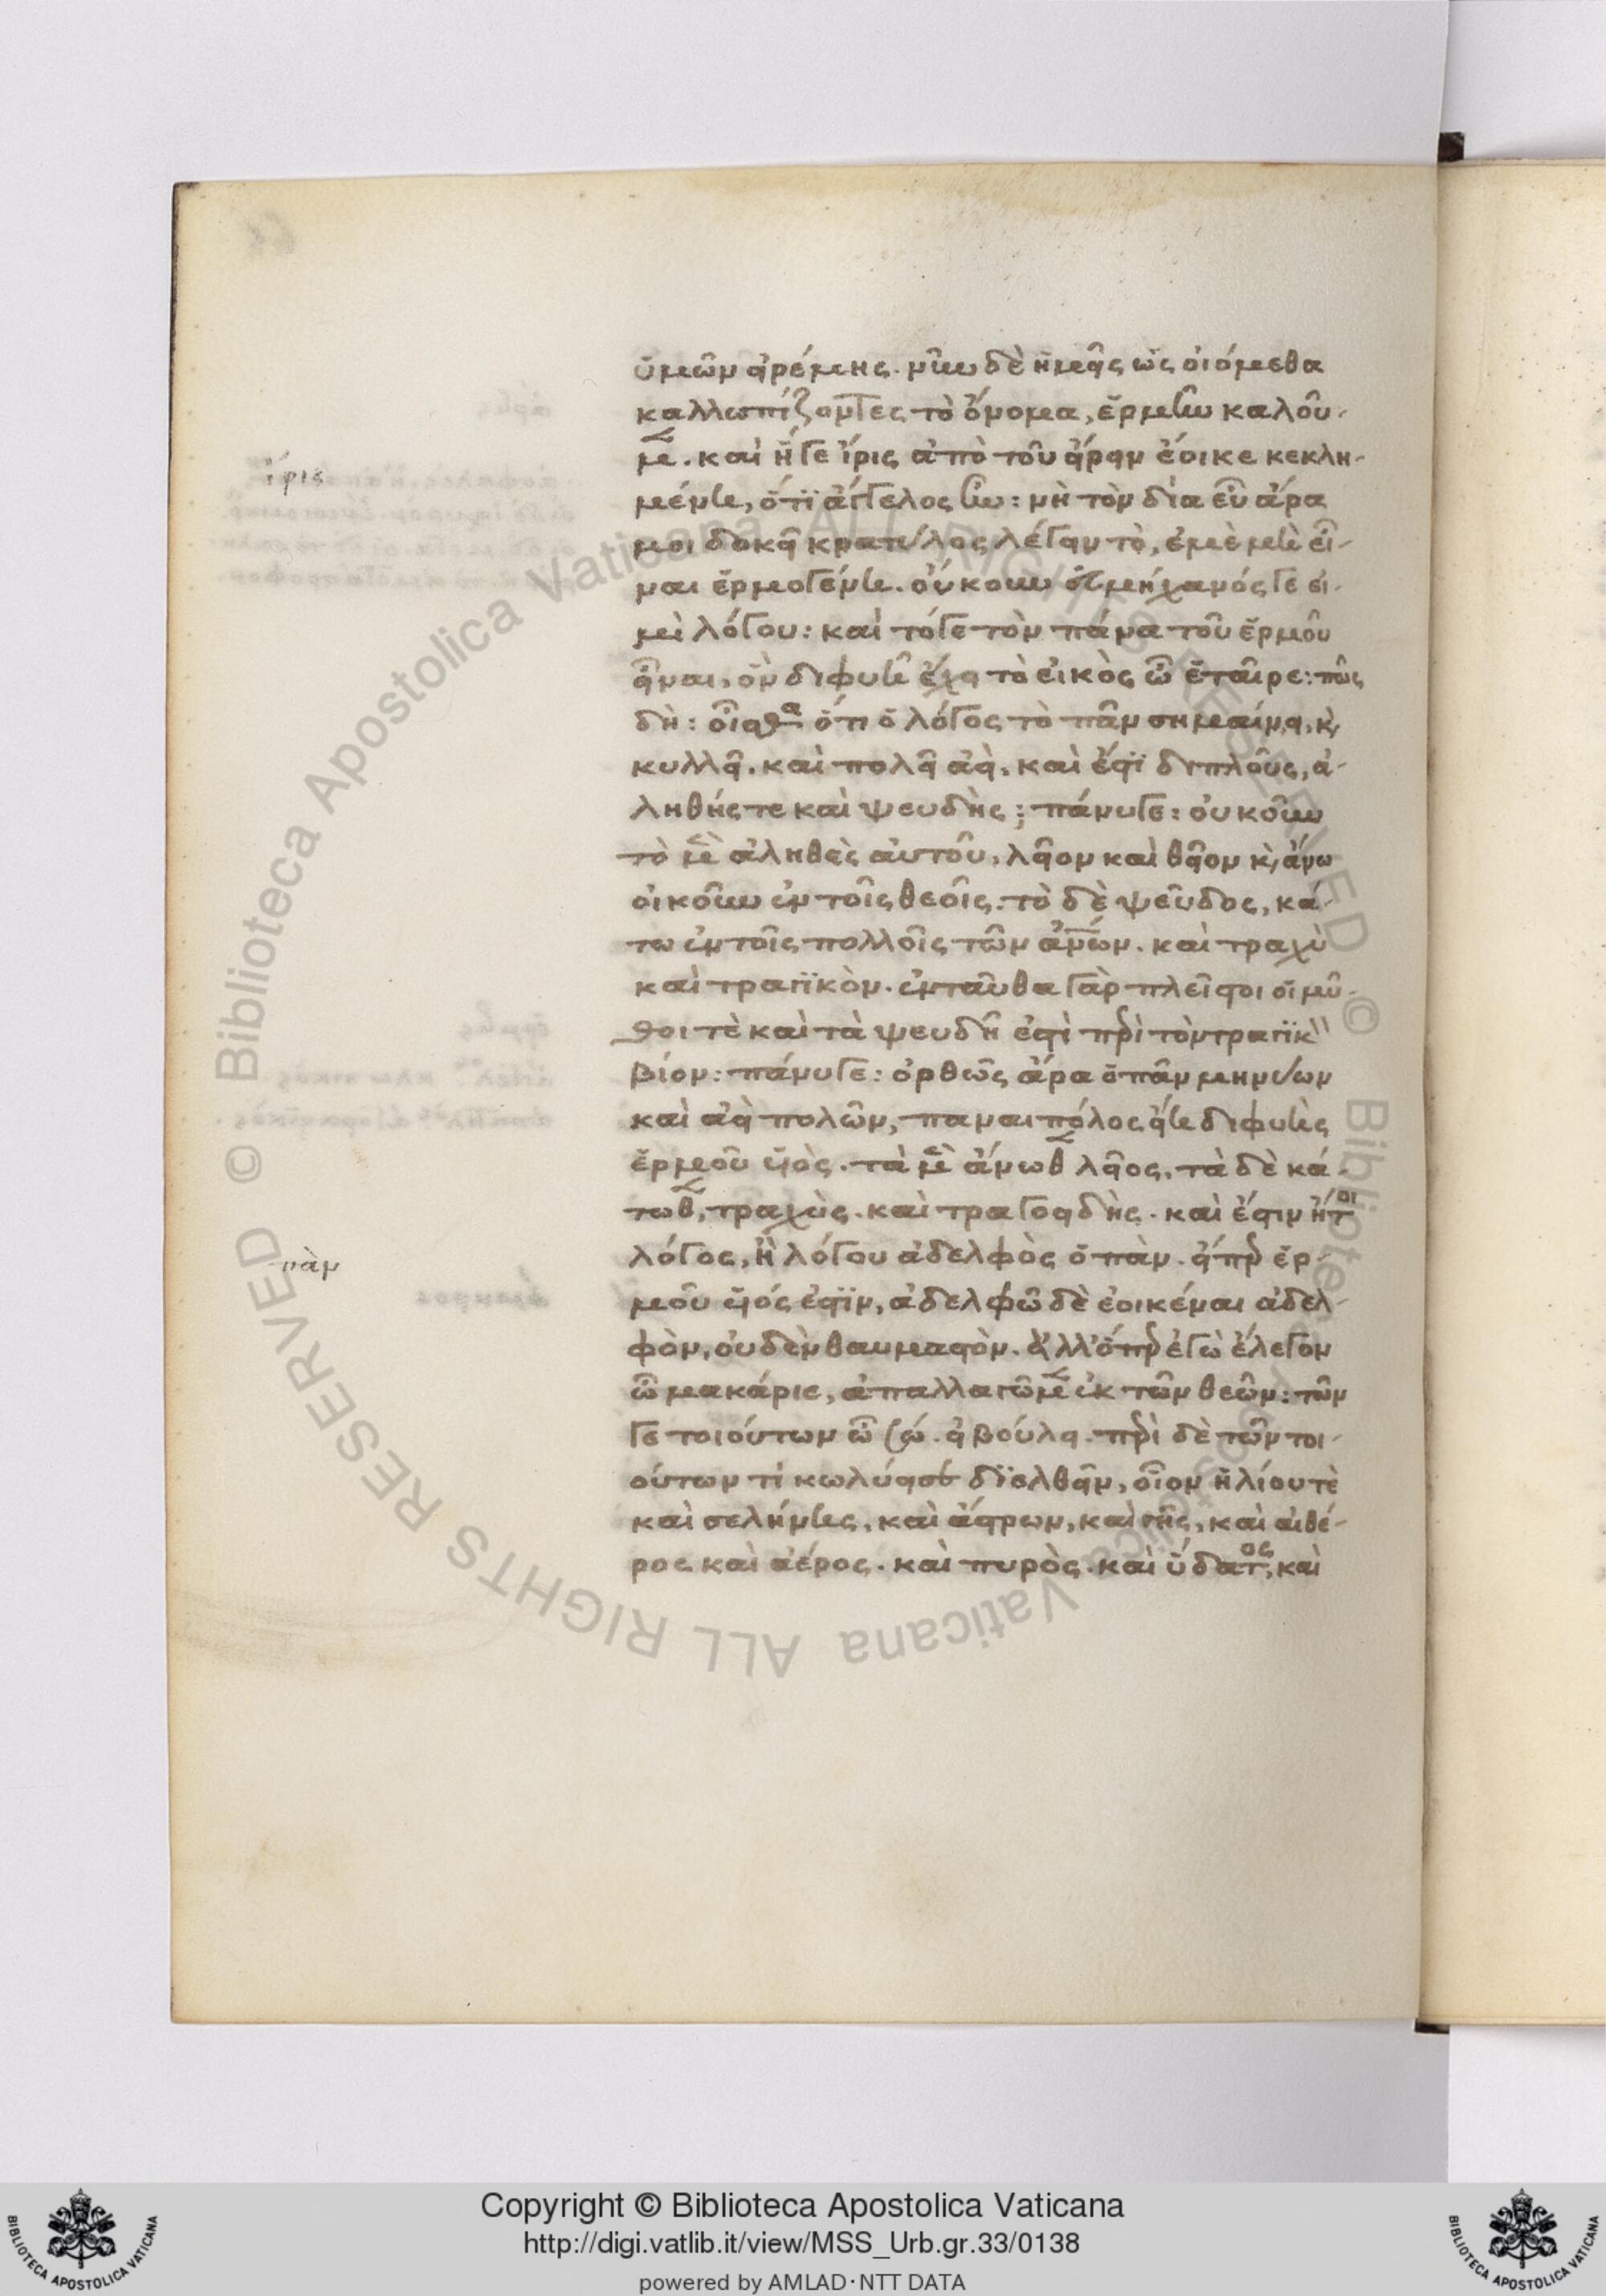 ὑμῶν εἰρέμης. νῦν δὲ ἡμεῖς ὡς οἰόμεθα
καλλωπίζοντες τὸ ὄνομα, ἑρμῆν καλοῦ-
μεν. καὶ ἥ γε ἶρις ἀπὸ τοῦ εἴρειν ἔοικε κεκλη-
ἶρις
μένη, ὅτι ἄγγελος ἦν: νὴ τὸν δία εὖ ἄρα
μοι δοκεῖ κρατύλος λέγειν τὸ, ἐμὲ μὴ εἶ-
ναι ἑρμογένη. οὔκουν εὐμήχανός γε εἰ-
μὶ λόγου: καὶ τό γε τὸν πάνα τοῦ ἑρμοῦ
εἶναι ὃν διφυῆ ἔχει τὸ εἰκὸς ὦ ἑταῖρε: πῶς
δή: οἶσθα ὅτι ὁ λόγος τὸ πᾶν σημαίνει, καὶ
κυλλεῖ. καὶ πολεῖ ἀεὶ, καὶ ἔστι διπλοῦς, ἀ-
ληθής τε καὶ ψευδής; πάνυ γε: οὐκοῦν
τὸ μὲν ἀληθὲς αὐτοῦ, λεῖον καὶ θεῖον καὶ ἄνω
οἰκοῦν ἐν τοῖς θεοῖς. τὸ δὲ ψεῦδος, κά-
τω ἐν τοῖς πολλοῖς τῶν ἀνων. καὶ τραχὺ
καὶ τραγικὸν. ἐνταῦθα γὰρ πλεῖστοι οἱ μῦ-
θοι τὲ καὶ τὰ ψευδῆ ἐστὶ περὶ τὸν τραγικὸν
βίον: πάνυ γε: ὀρθῶς ἄρα ὁ πᾶν μηνύων
καὶ ἀεὶ πολῶν, παναιπόλος εἴη διφυὴς
ἑρμοῦ υἱὸς. τὰ μὲν ἄνωθεν λεῖος, τὰ δὲ κά-
τωθεν, τραχὺς. καὶ τραγοειδὴς. καὶ ἔστιν ἤτοι
λόγος, ἢ λόγου ἀδελφὸς ὁ πὰν. εἴπερ ἑρ-
πὰν
μοῦ υἱός ἐστιν, ἀδελφῶ δὲ ἐοικέναι ἀδελ-
φὸν, οὐδὲν θαυμαστὸν. ἀλλ' ὅπερ ἐγὼ ἔλεγον
ὦ μακάριε, ἀπαλλαγῶμεν ἐκ τῶν θεῶν: τῶν
γε τοιούτων ὦ σώ. εἰ βούλει. περὶ δὲ τῶν τοι-
ούτων τί κωλύει σε διελθεῖν, οἷον ἡλίου τὲ
καὶ σελήνης, καὶ ἄστρων, καὶ γῆς, καὶ αἰθέ-
ρος καὶ ἀέρος. καὶ πυρὸς. καὶ ὕδατος, καὶ
Copyright © Biblioteca Apostolica Vaticana
http://digi.vatlib.it/view/MSS_Urb.gr.33/0138
powered by AMLAD·NTT DATA
© Biblioteca Apostolica Vaticana ALL RIGHTS RESERVED
© Biblioteca Apostolica Vaticana ALL RIGHTS RESERVED
BIBLIOTECA APOSTOLICA VATICANA
BIBLIOTECA APOSTOLICA VATICANA